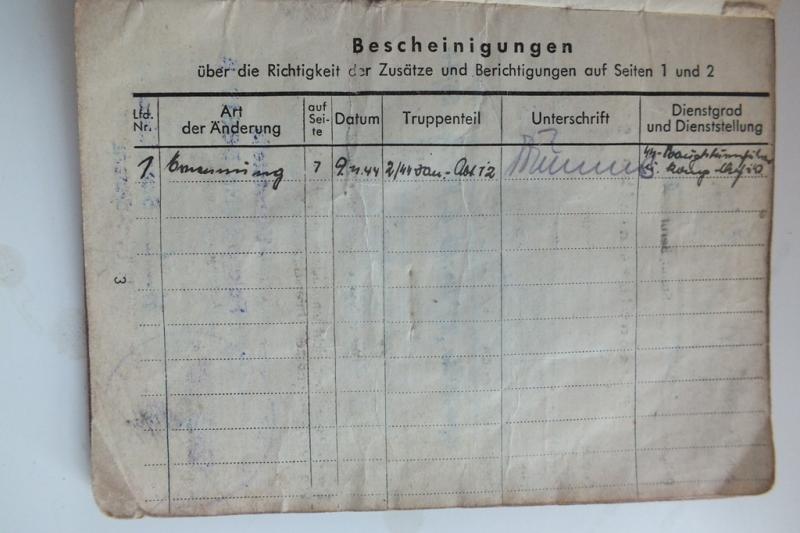 Bescheinigungen
über die Richtigkeit der Zusätze und Berichtigungen auf Seiten 1 und 2
Lfd. Nr.
Art der Änderung
auf Seite
Datum
Truppenteil
Unterschrift
Dienstgrad und Dienststellung
1. Ernennung 7 9.11.44 2/SS San.-Abt 12
3